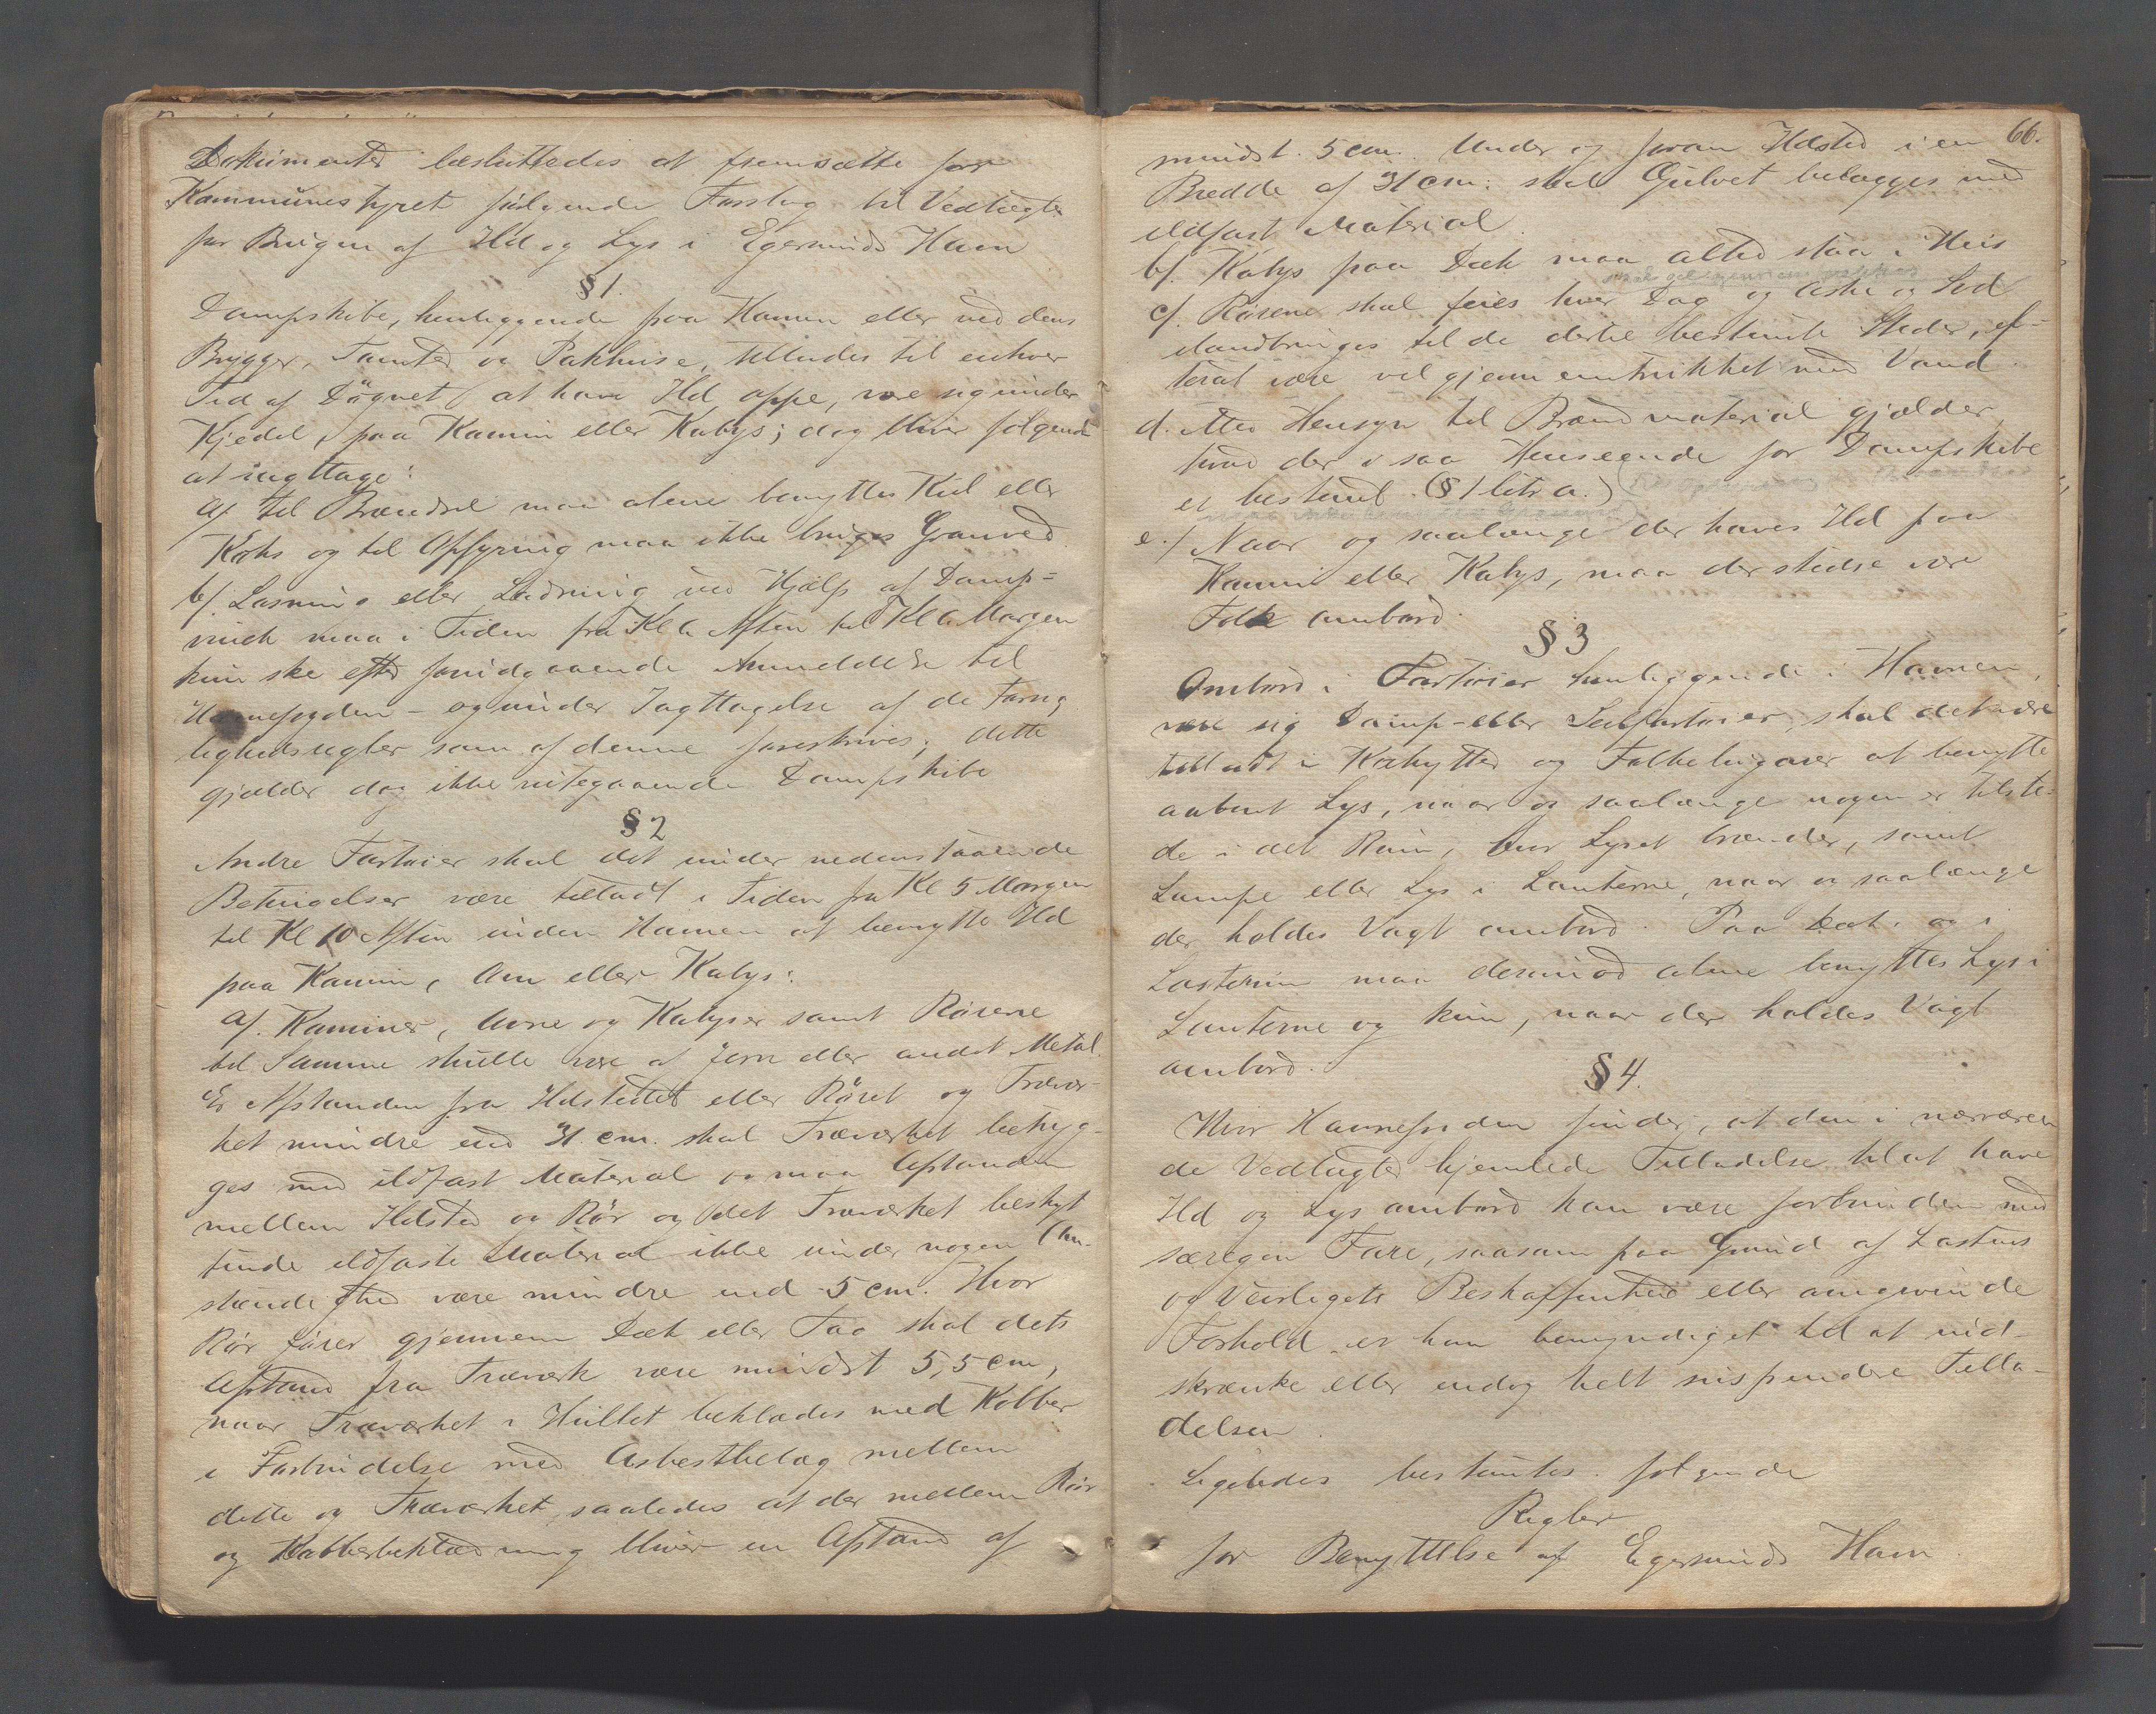 Dokumenter besluttedes at fremsætte for
Kommunestyret følgende Forslag til Vedtægter
for Brugen af Ild og Lys i Egersunds Havn
§ 1.
Dampskibe, henliggende paa Havnen eller ved dens
Brygger, Tomter og Pakhuse, tillades til enhver
Tid af Døgnet at have Ild oppe, være sig under
Kjedel, paa Kamin eller Kabys; dog bliver følgende
at iagttage:
a/. til Brændsel maa alene benyttes Kul eller
Koks og til Opfyring maa ikke bruges Granved.
b/. Losning eller Ladning ved Hjælp af Damp=
vinch maa i Tiden fra Kl Aften til Kl Morgen
kun ske efter forudgaaende Anmeldelse til
Havnefogden - og under Iagttagelse af de Forsig
tighedsregler som af denne foreskrives; dette
gjælder dog ikke rutegaaende Dampskibe
§ 2
Andre Fartøier skal det under nedenstaaende
Betingelser være tilladt i Tiden fra Kl 5 Morgen
til Kl 10 Aften inden Havnen at benytte Ild
paa Kamin, Ovn eller Kabys:
a/. Kaminer, Ovne og Kabyser samt Rørene
til Samme skulle være af Jern eller andet Metal.
Er Afstanden fra Ildstedet eller Røret og Trævær-
ket mindre end 31. cm. skal Træværket betryg-
ges med ildfast Material og maa Afstanden
mellem Ildsted og Rør og det Træværket beskyt
tende ildfaste Material ikke under nogen Om-
stændighed være mindre end 5 cm. Hvor
Rør fører gjennem Dæk eller Tag skal dets
Afstand fra Træværk være mindst 5,5 cm,
naar Træværket i Hullet beklædes med Kobber
i Forbindelse med Asbestbelæg mellem
dette og Træværket, saaledes at der mellem Rør
og Kobberbeklædning bliver en Afstand af
66.
mindst. 5 cm. Under og foran Ildsted i en
Bredde af 31 cm: skal Gulvet belægges med
ildfast Material.
b/. Kabys paa Dæk maa altid staa i Hus
c/. Rørene skal feies hver Dag og Aske og Sod
ilandbringes til de dertil bestemte Steder, ef-
terat være vel gjennemtrukket med Vand.
d. Med Hensyn til Brændmaterial gjælder,
hvad der i saa Henseende for Dampskibe
er bestemt. (§ 1 litr a.)
e./ Naar og saalænge der haves Ild paa
Kamin eller Kabys, maa der stedse være
Folk ombord.
§ 3
Ombord i Fartøier henliggende i Havnen,
være sig Damp- eller Seilfartøier, skal det være
tilladt i Kahytter og Folkelugarer at benytte
aabent Lys, naar og saalænge nogen er tilste-
de i det Rum, hvor Lyset brænder, samt
Lampe eller Lys i Lanterne, naar og saalænge
der holdes Vagt ombord. Paa Dæk. og i
Lasterum maa derimod alene benyttes Lys i
Lanterne og kun, naar der holdes Vagt
ombord.
§ 4.
Hvor Havnefogden finder, at den i nærværen
de Vedtægter hjemlede Tilladelse til at have
Ild og Lys ombord kan være forbunden med
særegen Fare, saasom paa Grund af Lastens
og Veirligets Beskaffenhed eller omgivende
Forhold er han bemyndiget til at ind-
skrænke eller endog helt suspendere Tilla-
delsen.
Ligeledes bestemtes. følgende
Regler
for Benyttelse af Egersunds Havn.